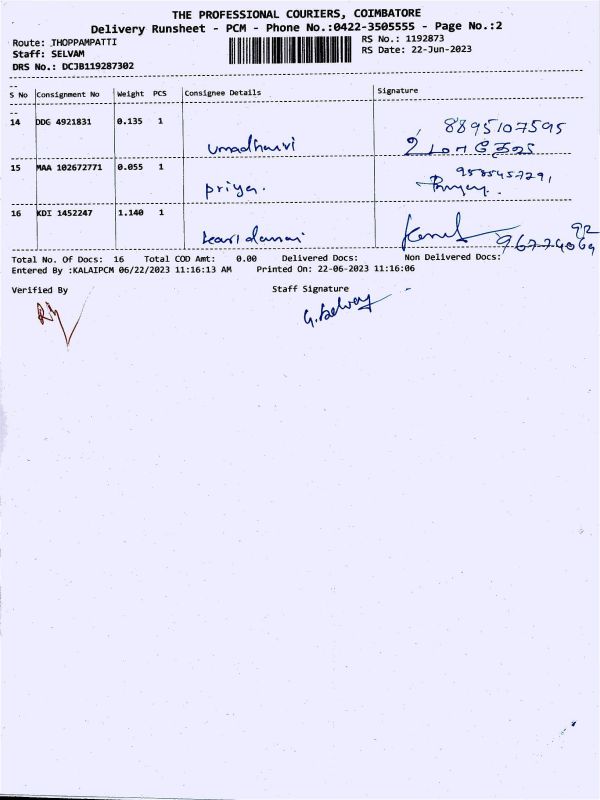 THE PROFESSIONAL COURIERS, COIMBATORE
Delivery Runsheet - PCM - Phone No.:0422-3505555 - Page No.:2
Route: THOPPAMPATTI
RS No.: 1192873
Staff: SELVAM
RS Date: 22-Jun-2023
DRS No.: DCJB119287302
S No Consignment No Weight PCS Consignee Details Signature
14 DDG 4921831 0.135 1
8895107595
umadhaivi
15 MAA 102672771 0.055 1
priya.
16 KDI 1452247 1.140 1
Total No. Of Docs: 16 Total COD Amt: 0.00 Delivered Docs: Non Delivered Docs:
Entered By :KALAIPCM 06/22/2023 11:16:13 AM Printed On: 22-06-2023 11:16:06
Verified By Staff Signature
G. Selvaj